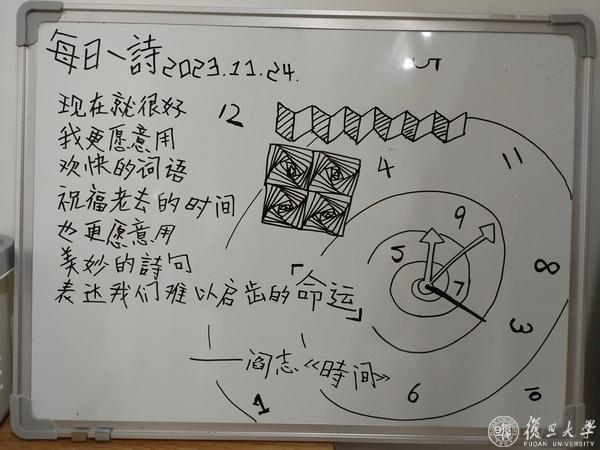 每日一詩2023.11.24.
现在就很好
我更愿意用
欢快的词语
祝福老去的时间
也更愿意用
美妙的詩句
表达我们难以启齿的「命运」
——阎志《時间》
12
5
11
4
9
5
7
8
3
10
6
1
復旦大學
FUDAN UNIVERSITY